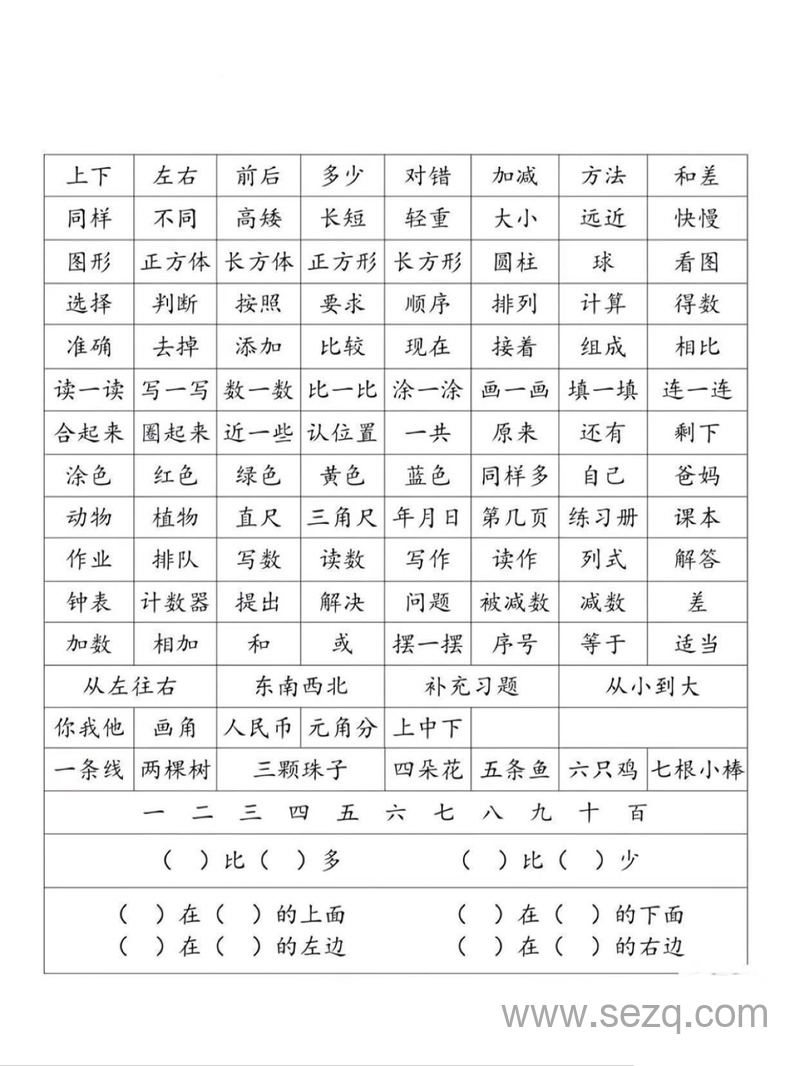 上下 左右 前后 多少 对错 加减 方法 和差
同样 不同 高矮 长短 轻重 大小 远近 快慢
图形 正方体 长方体 正方形 长方形 圆柱 球 看图
选择 判断 按照 要求 顺序 排列 计算 得数
准确 去掉 添加 比较 现在 接着 组成 相比
读一读 写一写 数一数 比一比 涂一涂 画一画 填一填 连一连
合起来 圈起来 近一些 认位置 一共 原来 还有 剩下
涂色 红色 绿色 黄色 蓝色 同样多 自己 爸妈
动物 植物 直尺 三角尺 年月日 第几页 练习册 课本
作业 排队 写数 读数 写作 读作 列式 解答
钟表 计数器 提出 解决 问题 被减数 减数 差
加数 相加 和 或 摆一摆 序号 等于 适当
从左往右 东南西北 补充习题 从小到大
你我他 画角 人民币 元角分 上中下
一条线 两棵树 三颗珠子 四朵花 五条鱼 六只鸡 七根小棒
一 二 三 四 五 六 七 八 九 十 百
（ ）比（ ）多 （ ）比（ ）少
（ ）在（ ）的上面 （ ）在（ ）的下面
（ ）在（ ）的左边 （ ）在（ ）的右边
www.sezq.com